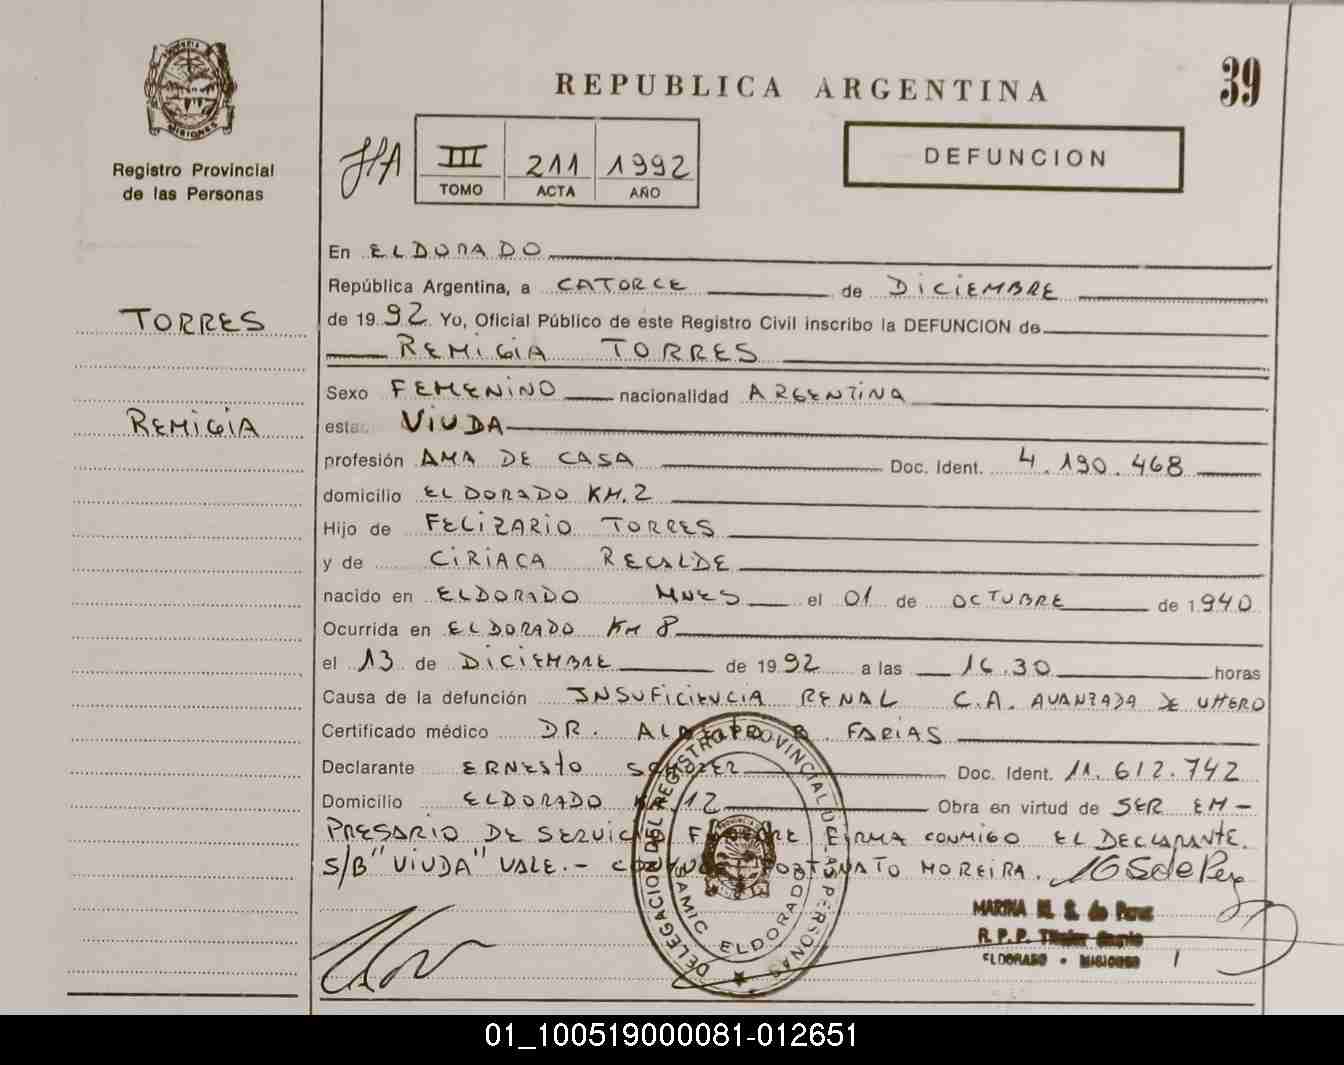 PROVINCIA DE MISIONES
Registro Provincial
de las Personas
REPUBLICA ARGENTINA
39
III 211 1992
TOMO ACTA AÑO
DEFUNCION
En ELDORADO
República Argentina, a CATORCE de DICIEMBRE
de 1992 Yo, Oficial Público de este Registro Civil inscribo la DEFUNCION de
REMIGIA TORRES
TORRES
REMIGIA
Sexo FEMENINO nacionalidad ARGENTINA
estado VIUDA
profesión AMA DE CASA Doc. Ident. 4.190.468
domicilio ELDORADO KM.2
Hijo de FELIZARIO TORRES
y de CIRIACA RECALDE
nacido en ELDORADO MNES el 01 de OCTUBRE de 1940
Ocurrida en ELDORADO KM 8
el 13 de DICIEMBRE de 1992 a las 16.30 horas
Causa de la defunción INSUFICIENCIA RENAL C.A. AVANZADA DE UTERO
Certificado médico DR. FARIAS
Declarante ERNESTO Doc. Ident. 11.612.742
Domicilio ELDORADO KM 12 Obra en virtud de SER EM-
PRESARIO DE SERVICIO FUNEBRE FIRMA CONMIGO EL DECLARANTE.
S/B "VIUDA" VALE.- CONYUGE FORTUNATO MOREIRA.
MARINA M. S. de Perez
R.P.P. Titular
ELDORADO - MISIONES
DELEGACION DEL REGISTRO PROVINCIAL DE LAS PERSONAS
SAMIC ELDORADO
01_100519000081-012651